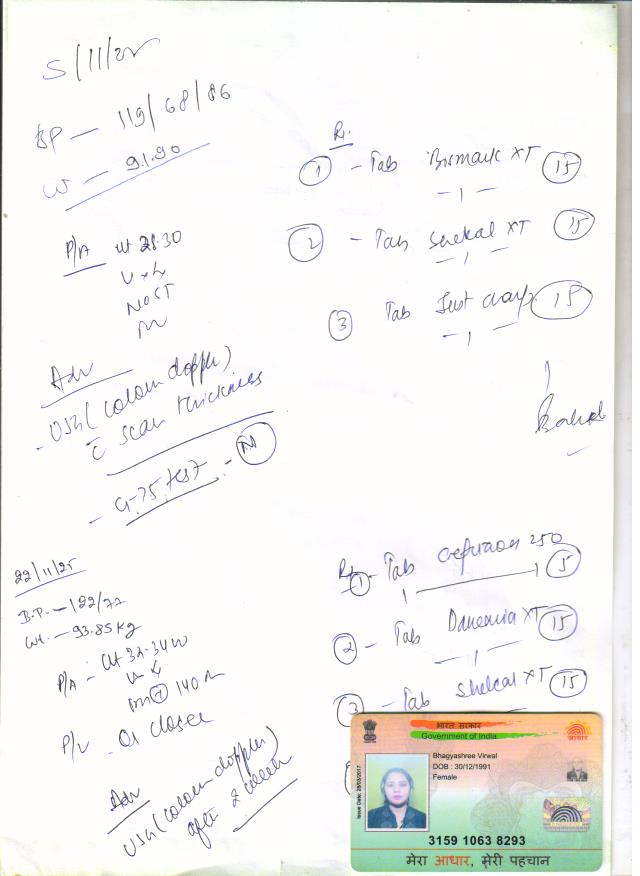 5/11/25
BP — 119/68/86
W — 91.90
P/A ut 28.30
No CT
Adv
- USG (colour doppler)
c scar thickness
- G-75 test - N
R.
1 - Tab XT 15
- 1 -
2 - Tab Shelcal XT 15
- 1 -
3 Tab 15
- 1 -
22/11/25
B.P. — 122/77
Wt. — 93.85 kg
P/A - Ut 32-34 w
140
P/V - Os closed
Adv
USG (colour doppler)
after 2 week
Rx
1 - Tab 250 5
1 — 1
2 - Tab XT 15
- 1 -
3 - Tab Shelcal XT 15
भारत सरकार
Government of India
आधार
Issue Date: 28/03/2017
Bhagyashree Virwal
DOB : 30/12/1991
Female
3159 1063 8293
मेरा आधार, मेरी पहचान